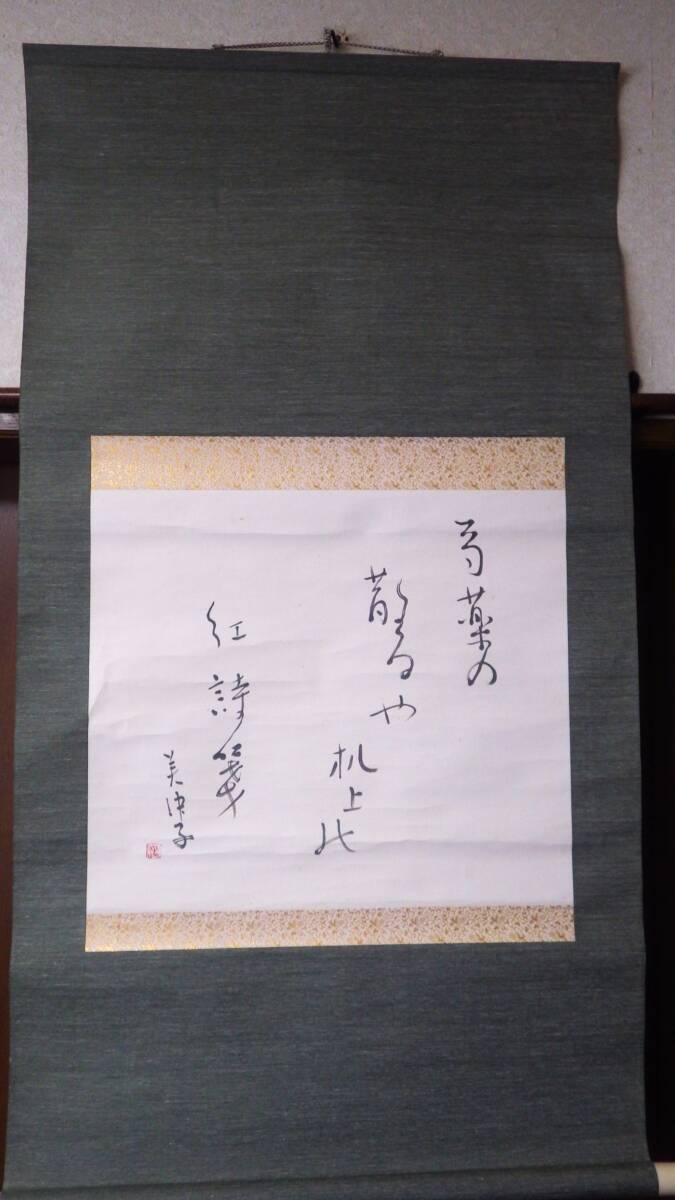 芍薬の
散るや机上の
紅詩箋
美津子